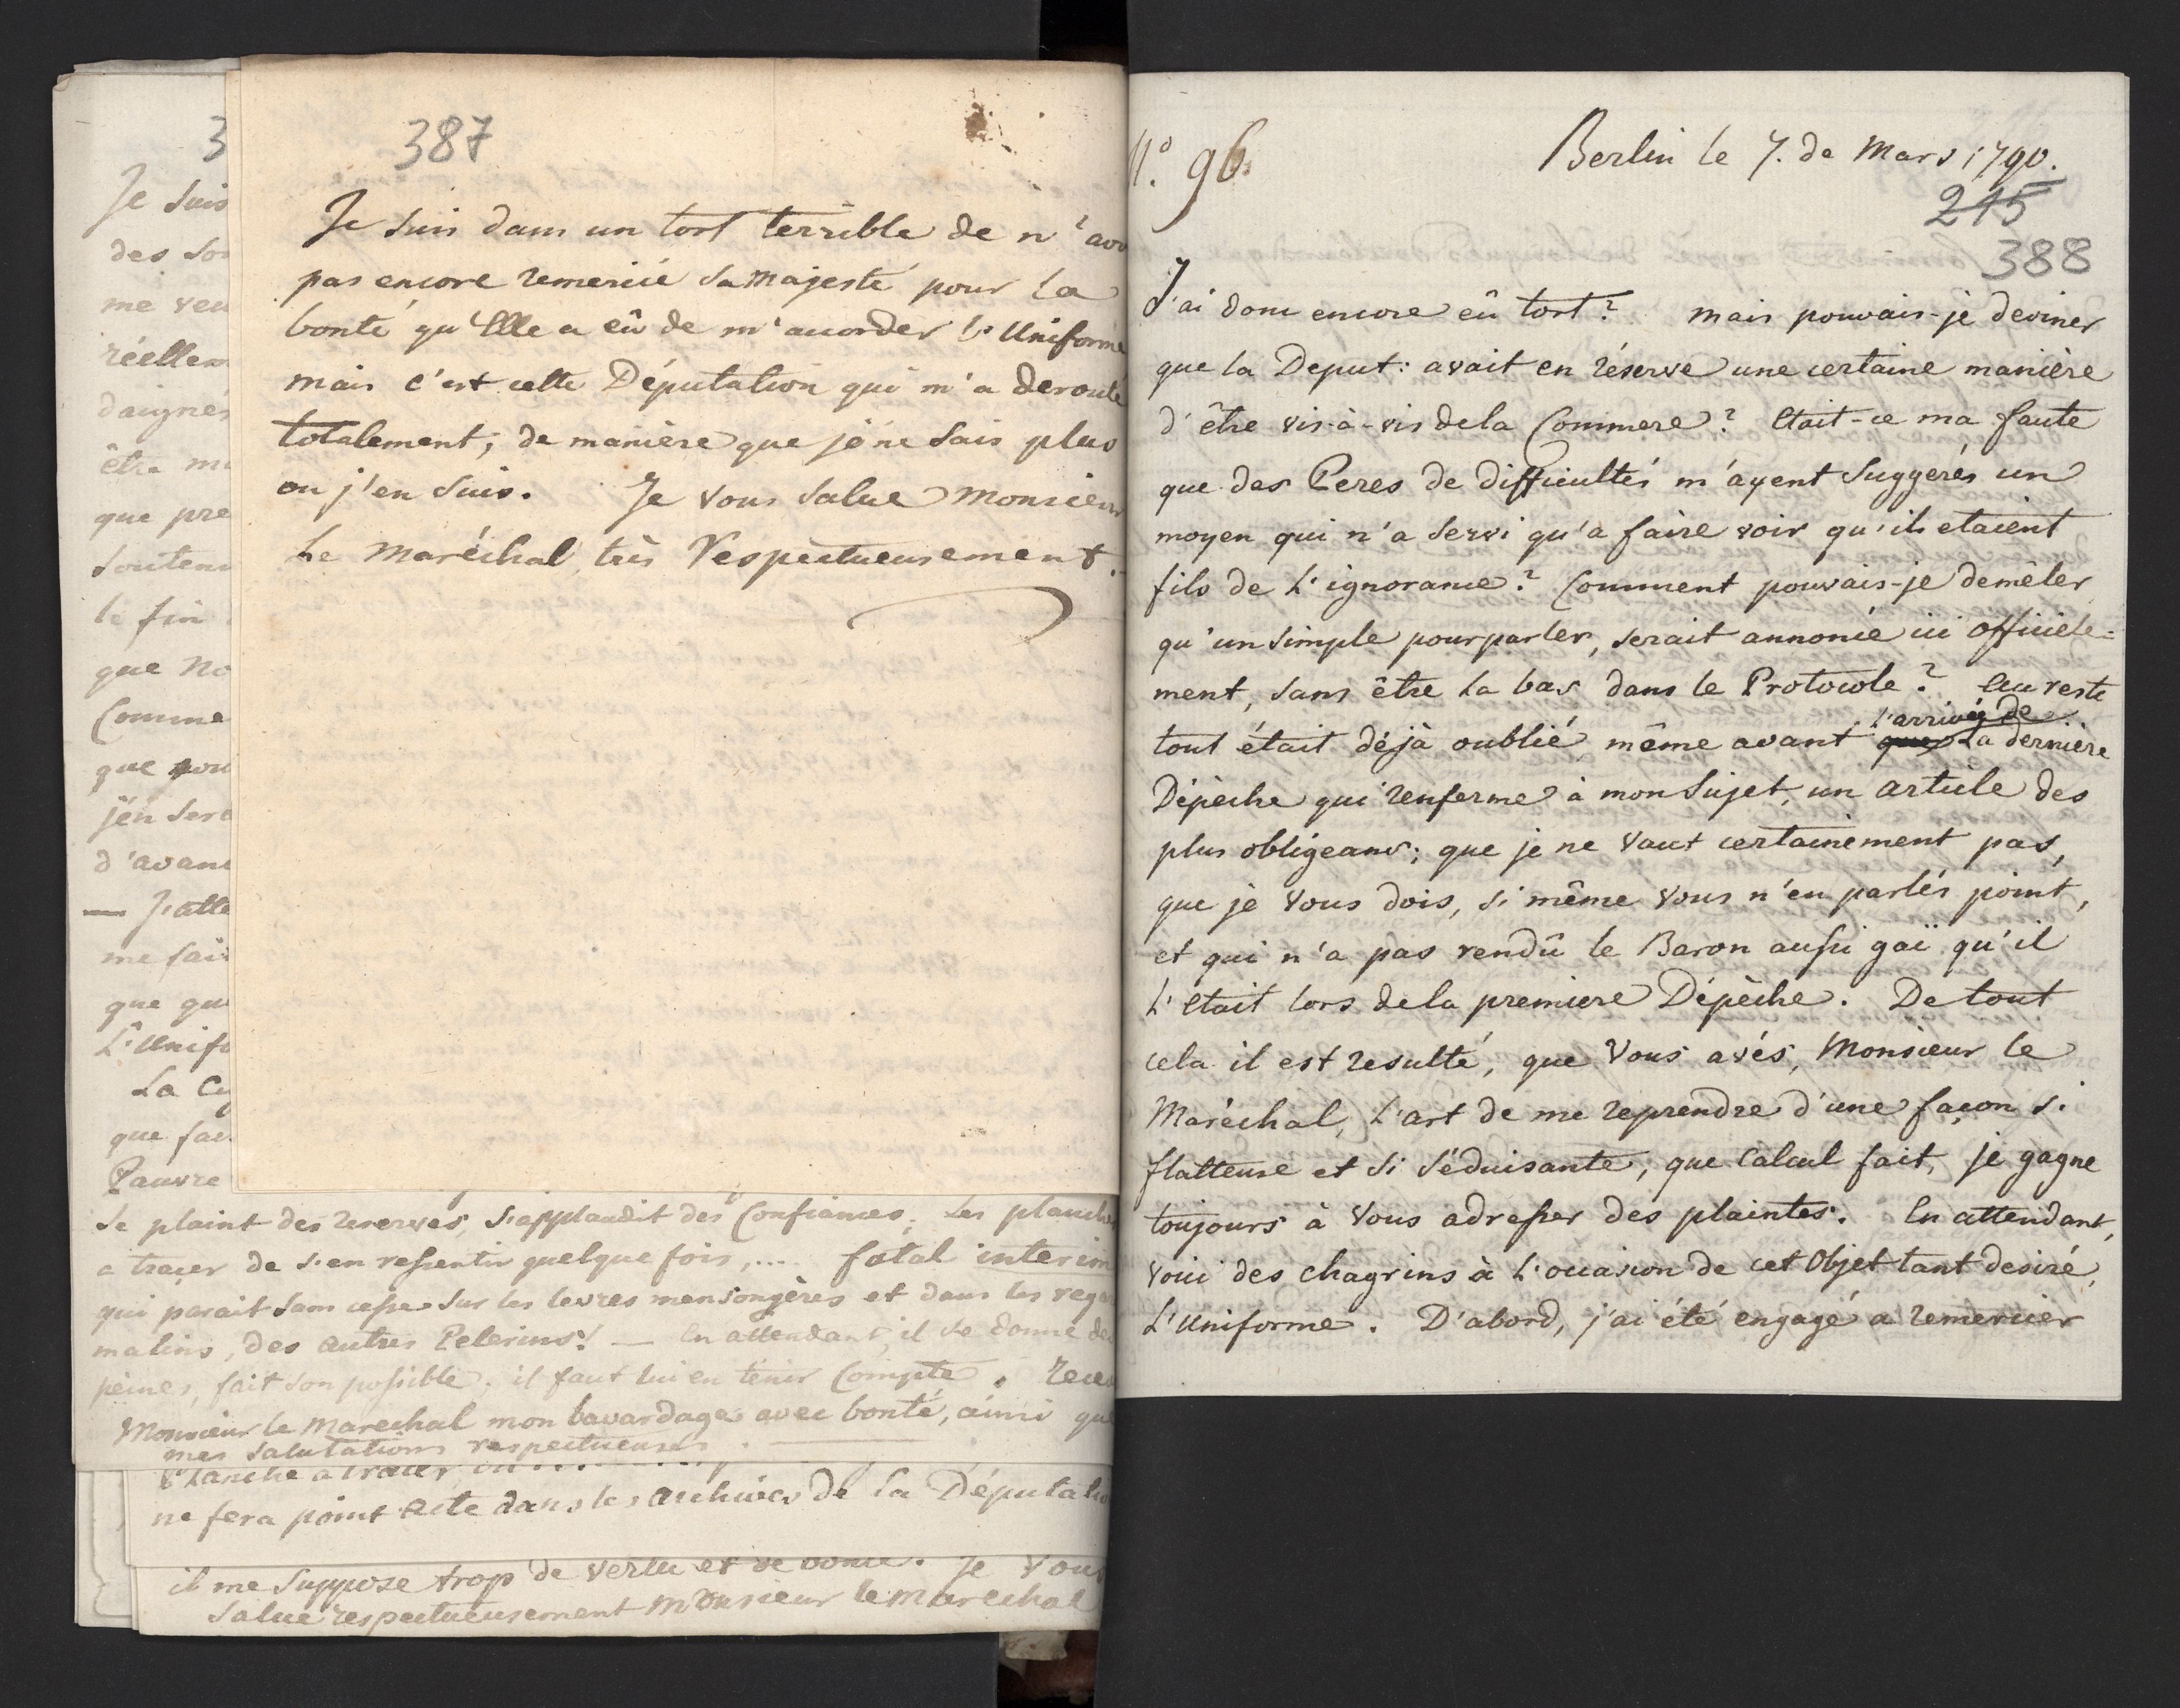 387
Je suis dans un tort terrible de n'avo
pas encore remercié Sa Majesté pour la
bonté qu'Elle a eû de m'accorder l'Uniforme
mais c'est cette Députation qui m'a derouté
totalement, de manière que je ne sais plus
ou j'en suis. Je vous salue Monsieur
Le Maréchal très Respectueusement.
3
Je suis
des so
me veu
réellem
daignés
être m
que pre
souten
le fin
que No
Comme
que pou
j'en sere
d'avan
— J'atte
me fai
que qu
L'Unifo
La C
que fai
Pauvre
se plaint des reserves, s'applaudit des Confiances; les planch
a traçer de s'en ressentir quelque fois, .... fatal interim
qui parait sans cesse sur les levres mensongères et dans les rega
malins, des autres Pelerins! — En attendant, il se donne de
peines, fait son possible. il faut lui en tenir Compte. Rece
Monsieur le Marechal mon bavardage avec bonté, ainsi que
mes salutations respectueuses.
Planche a tracer
ne fera point acte dans les archives de la Députatio
il me suppose trop de vertu et de bonté. Je vous
salue respectueusement Monsieur le Marechal
N.º 96.
Berlin le 7. de Mars 1790.
215
388
J'ai donc encore eû tort? Mais pouvais-je deviner
que la Deput: avait en réserve une certaine manière
d'être vis-à-vis de la Commere? Etait-ce ma faute
que des Peres de difficultés m'ayent suggerés un
moyen qui n'a servi qu'a faire voir qu'ils etaient
fils de l'ignorance? Comment pouvais-je demêler
qu'un simple pourparler, serait annoncé ici officiele-
ment, sans être la bas dans le Protocole? Au reste
l'arrivée de
tout était déjà oublié même avant que la dernière
Dépêche qui renferme à mon sujet, un article des
plus obligeans; que je ne vaut certainement pas,
que je vous dois, si même vous n'en parlés point,
et qui n'a pas rendû le Baron aussi gai qu'il
l'etait lors de la premiere Dépêche. De tout
cela il est resulté, que Vous avés, Monsieur le
Maréchal, l'art de me reprendre d'une façon si
flatteuse et si séduisante, que Calcul fait, je gagne
toujours à Vous adresser des plaintes. En attendant,
voici des chagrins à l'occasion de cet Objet tant desiré,
L'Uniforme. D'abord, j'ai été engagé a remercier